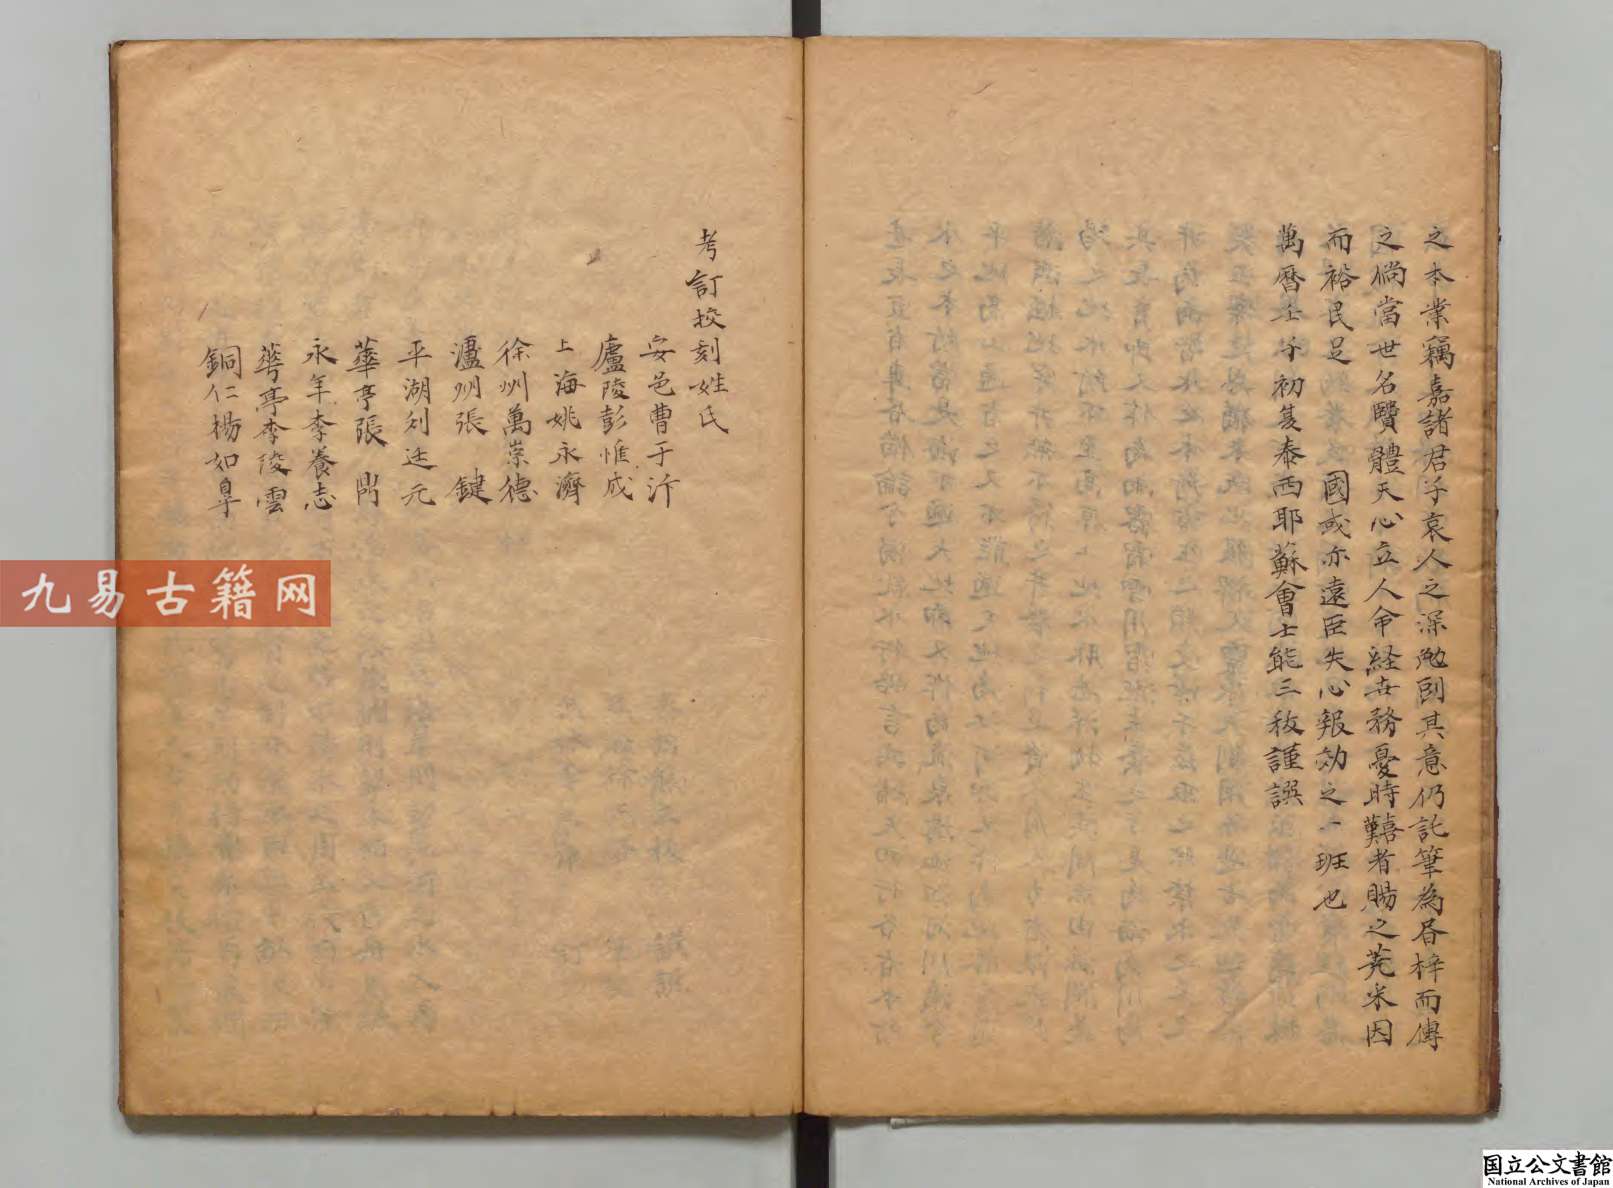 之本業竊嘉諸君子哀人之深勉副其意仍託筆為昏梓而傳
之倘當世名賢體天心立人命経世務憂時艱者賜之蕘采因
而裕民足國或亦遠臣矢心報効之一班也
萬曆壬子初夏泰西耶蘇會士熊三拔謹譔
考訂挍刻姓氏
安邑曹于汴
廬陵彭惟成
上海姚永濟
徐州萬崇德
瀘州張鍵
平湖刘廷元
華亭張鼐
永年李養志
華亭李凌雲
銅仁楊如皐
九易古籍网
国立公文書館
National Archives of Japan